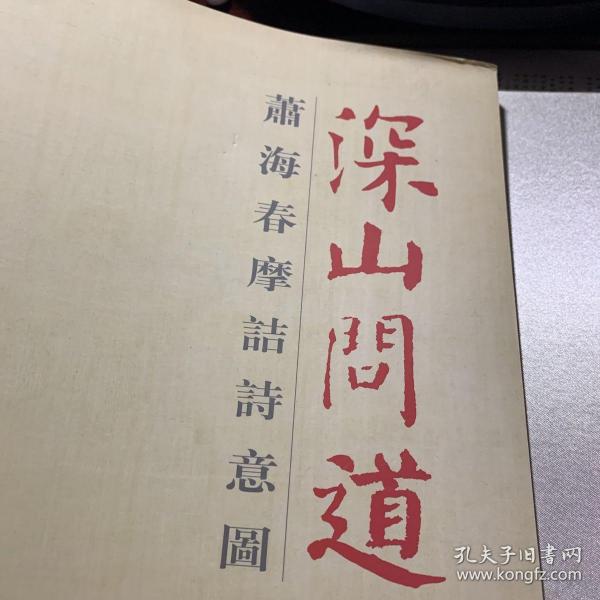 深山問道
蕭海春摩詰詩意圖
孔夫子旧书网
www.kongfz.com